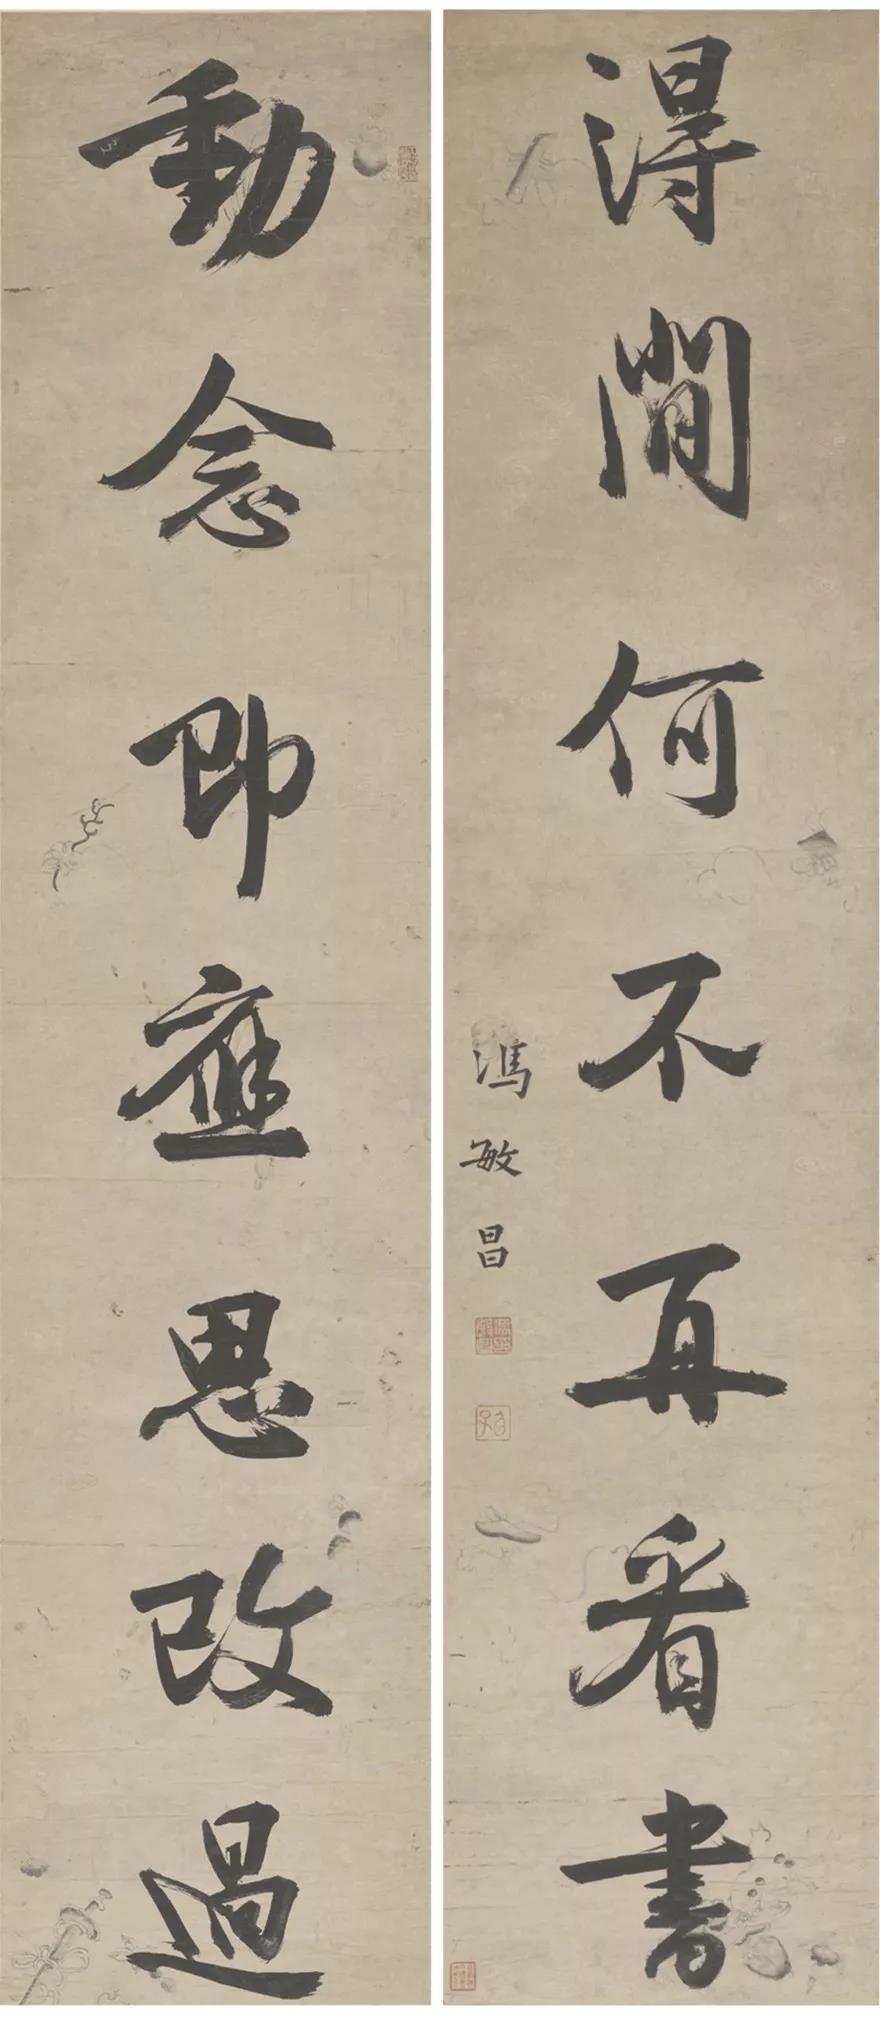 動念即應思改過
得閒何不再看書
馮敏昌